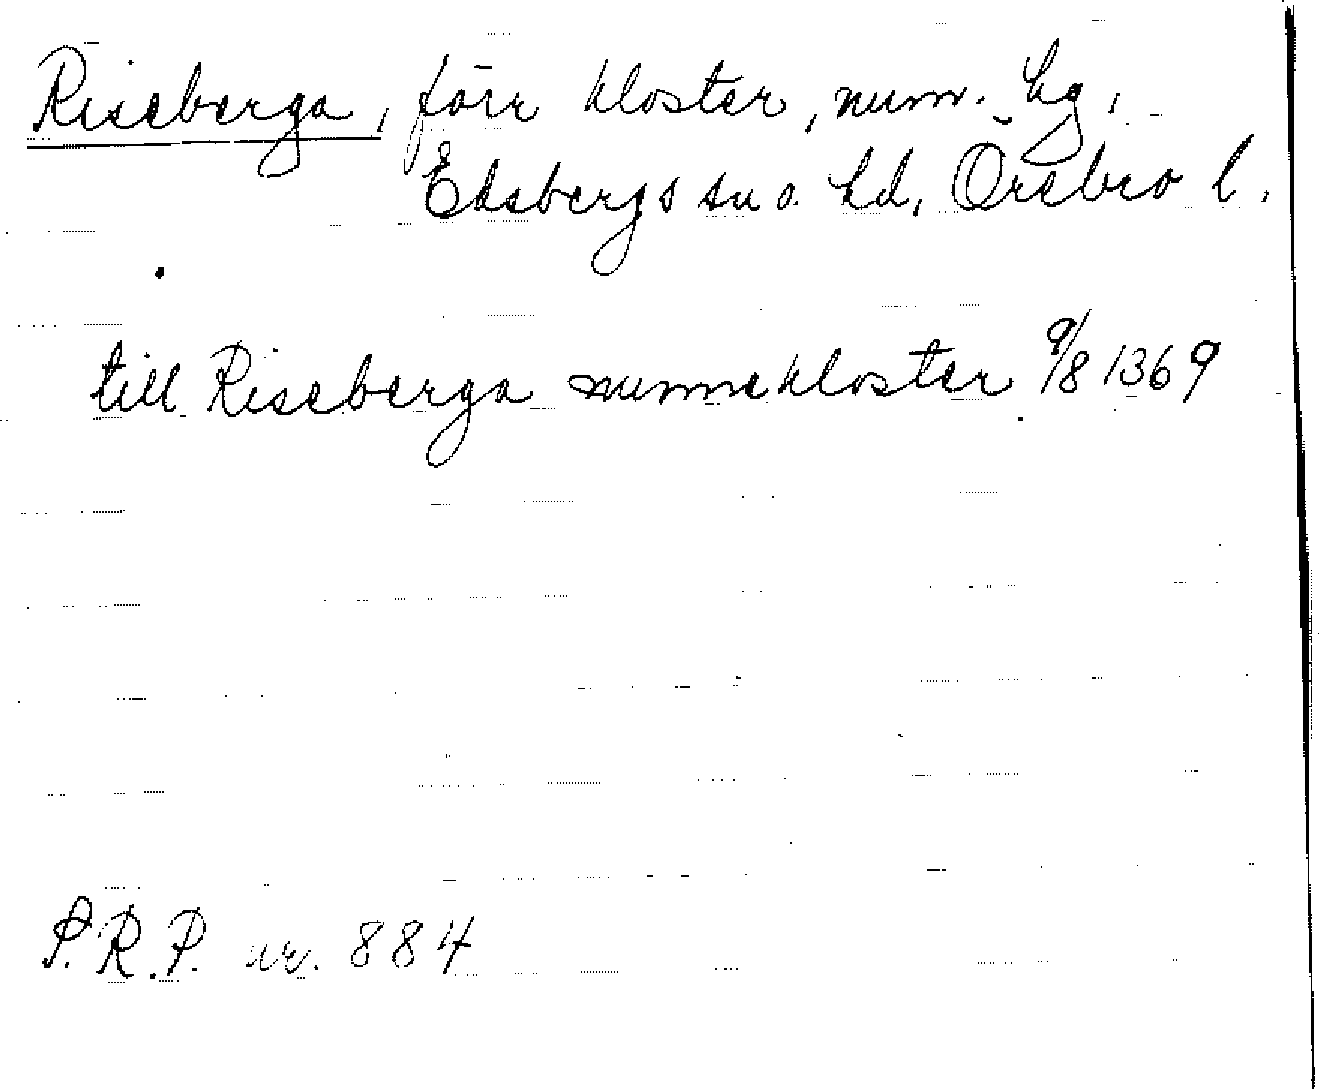 Riseberga, förr kloster, num. hg,
Edsbergs sn o. hd, Örebro l.
till Riseberga nunnekloster 9/8 1369
P.R.P. nr. 884